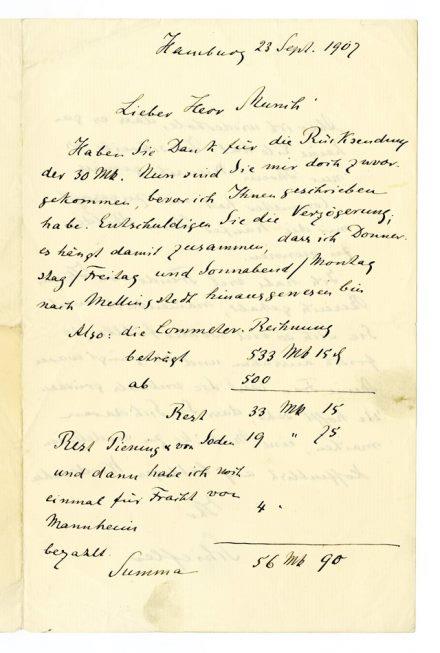 Hamburg 23 Sept. 1907
Lieber Herr Munch
Haben Sie Dank für die Rücksendung
der 30 Mk. Nun sind Sie mir doch zuvor-
gekommen, bevor ich Ihnen geschrieben
habe. Entschuldigen Sie die Verzögerung;
es hängt damit zusammen, dass ich Donner-
stag/Freitag und Sonnabend/Montag
nach Mellingstedt hinausgewesen bin
Also: die Commeter-Rechnung
beträgt 533 Mk 15 ₰
ab 500
Rest 33 Mk 15
Rest Piening & von Soden 19 " 75
und dann habe ich noch
einmal für Fracht von 4 "
Mannheim
bezahlt.
Summa 56 Mk 90